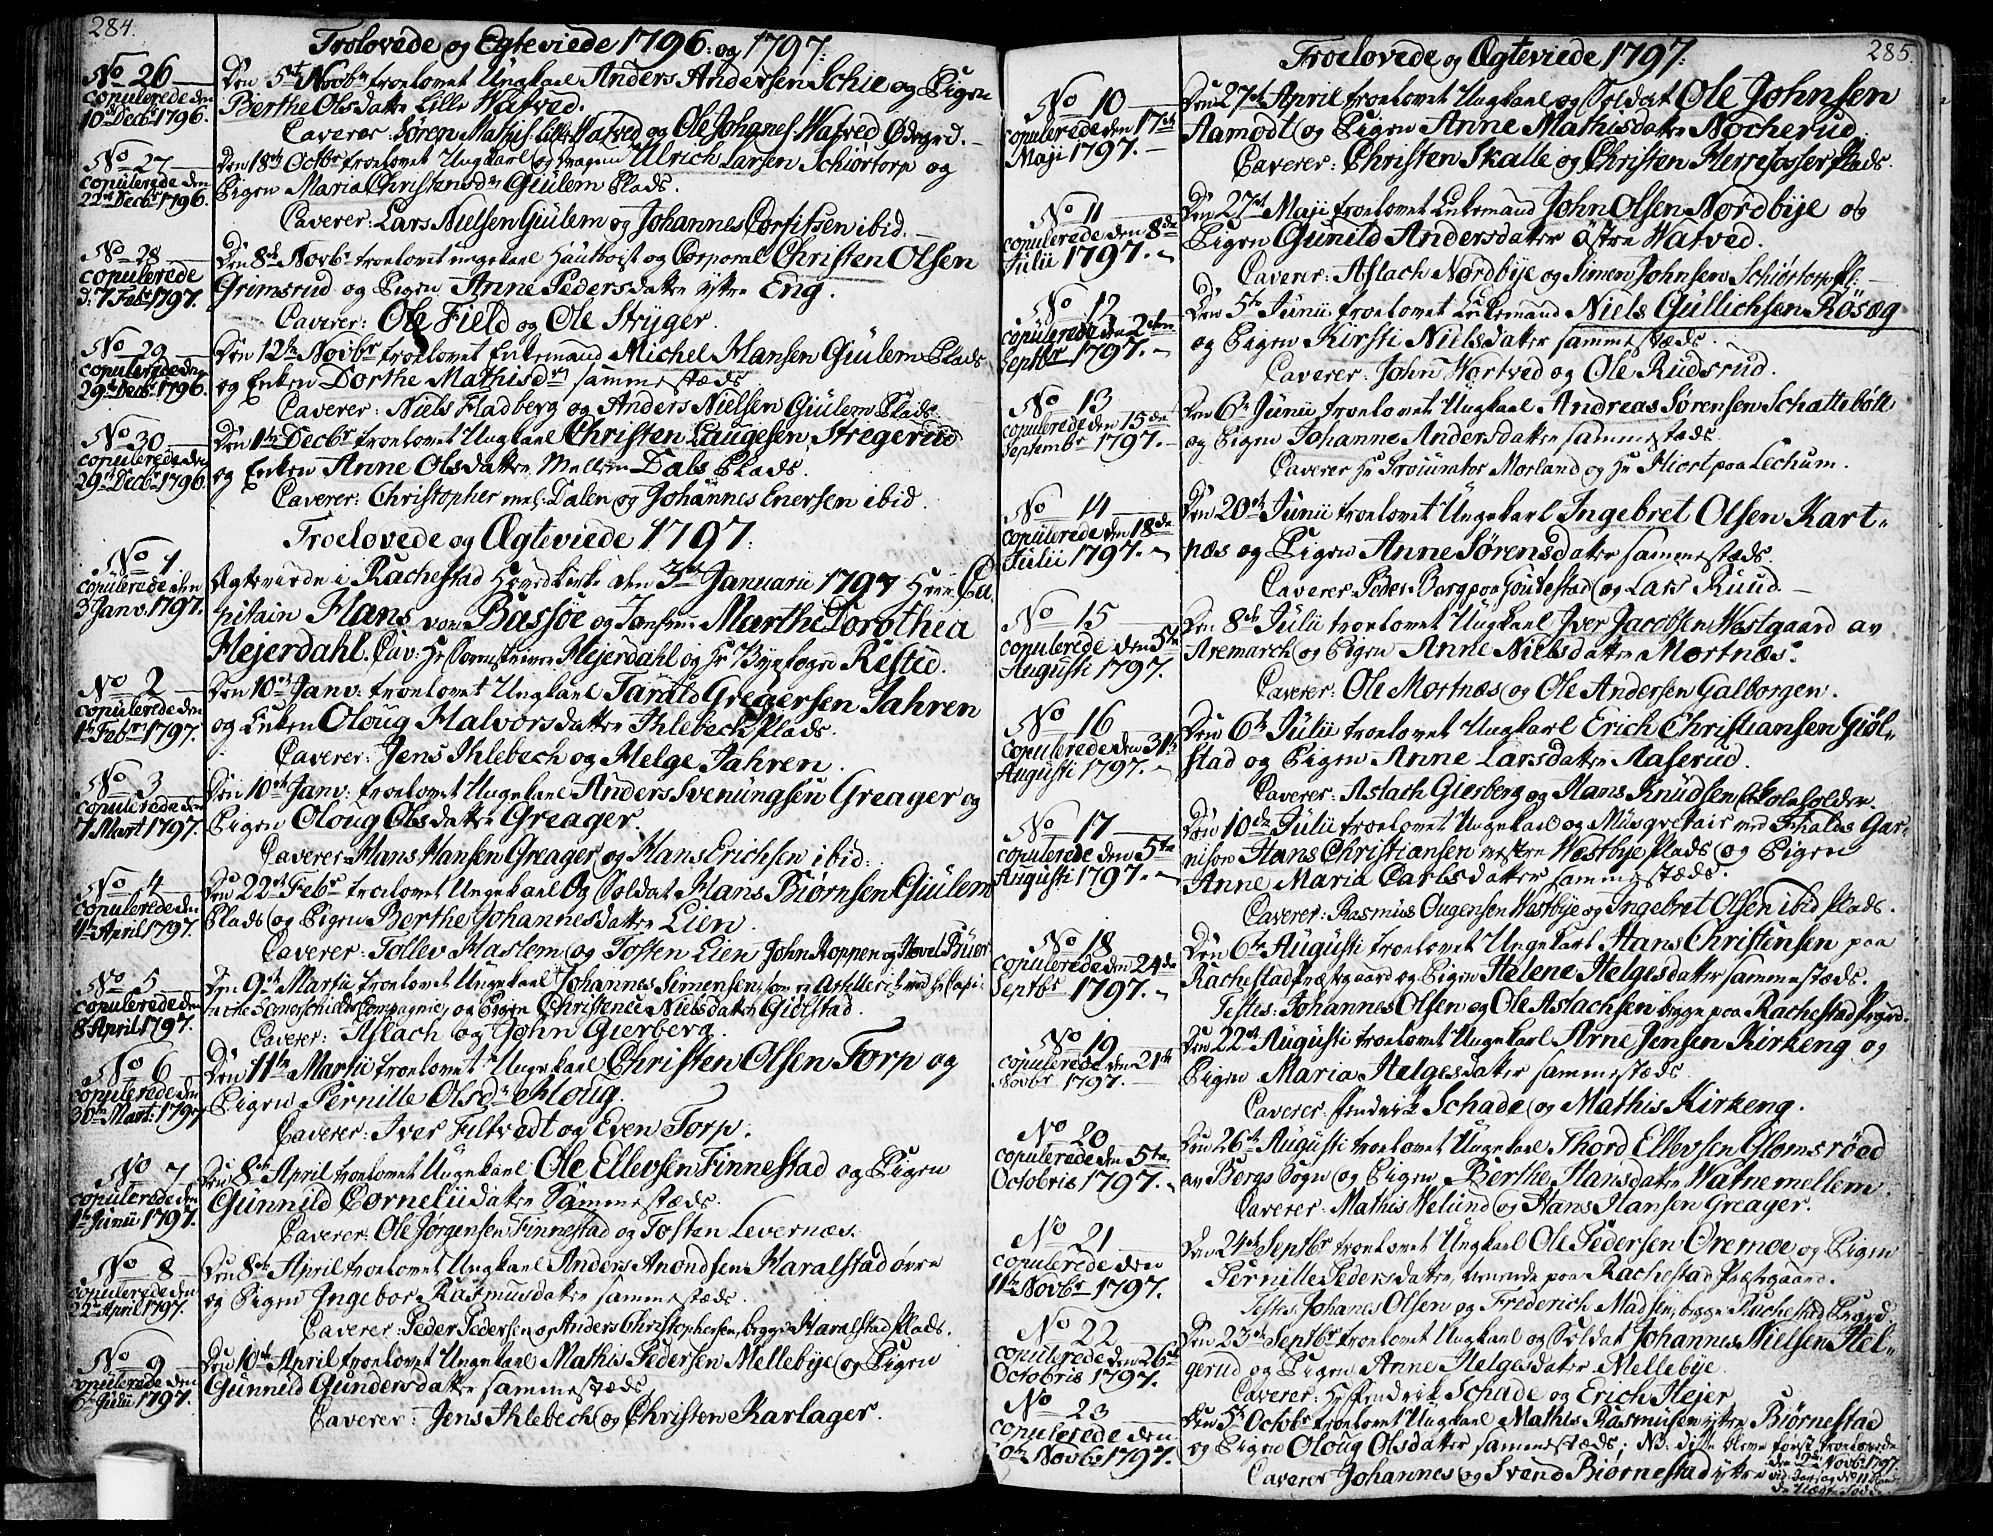 284.
Trolovede og Egteviede 1796: og 1797:
No 26
copulerede den
10de Decbr 1796.
Den 5te Novbr troelovet Ungkarl Anders Andersen Schie og Pigen
Berthe Olsdatter Lille Watved.
Caverer: Søren Mathis: Lille Watved og Ole Johanes: Watved Ødegrd.
No 27
copulerede den
22de Decbr 1796.
Den 18de Octbr troelovet Ungkarl og Dragun Ulrich Larsen Schiørtorp og
Pigen Maria Christensdr Giulem Plads.
Caverer: Lars Nielsen Giulem og Johannes Corfitsen ibid.
No 28
copulerede
d: 7 Febr 1797.
Den 8de Novbr troelovet ungekarl Hautboist og Corporal Christen Olsen
Grimsrud og Pigen Anne Pedersdatter ytre Eng.
Caverer: Ole Field og Ole Stryger.
No 29
copulerede den
29de Decbr 1796.
Den 12te Novbr troelovet Enkemand Michel Hansen Giulem Plads
og Enken Dorthe Mathisdr sammestæds
Caverer: Niels Fladberg og Anders Nielsen Giulem Plads.
No 30
copulerede den
29de Decbr 1796.
Den 1te Decbr troelovet Ungkarl Christen Laugesen Stregerud
og Enken Anne Olsdatter Mellem Dals Plads
Caverer: Christopher mel: Dalen og Johannes Enersen ibid.
Troelovede og Ægteviede 1797:
No 1
copulerede den
3 Janv. 1797.
Ægteviede i Rachestad Hovedkirke den 3die Januarii 1797 Herr Ca-
pitain Hans von Bassøe og Jomfrue Marthe Dorothea
Hejerdahl. Cav: Hr Sorenskriver Hejerdahl og Hr Byefoged Rested.
No 2
copulerede den
1te Febr 1797.
Den 10de Janv: troelovet Ungkarl Tarald Gregersen Jahren
og Enken Oloug Halvorsdatter Ihlebech Plads.
Caverer: Jens Ihlebech og Helge Jahren.
No 3
copulerede den
7 Mart 1797.
Den 10de Janv: troelovet Ungekarl Anders Svenungsen Greager og
Pigen Oloug Olsdatter Greager.
Caverer: Hans Hansen Greager og Hans Erichsen ibid:
No 4
copulerede den
4de April 1797.
Den 22de Febr troelovet Ungekarl Og Soldat Hans Biørnsen Giulem
Plads og Pigen Berthe Johannesdatter Lien.
Caverer: Tollev Haslem og Tosten Lien John Koppen og Hovel Buer
No 5
copulerede den
8 April 1797.
Den 9de Martii troelovet Ungekarl Johannes Simensen, som er Artillerist ved Hr Capi-
taine Somerschilds Compagnie, og Pigen Christence Nielsdatter Giølstad.
Caverer: Aslach og John Gierberg.
No 6
copulerede den
30te Mart: 1797
Den 11te Martii troelovet Ungekarl Christen Olsen Torp og
Pigen Pernille Olsdr Kloug.
Caverer: Iver Filtvedt og Even Torp.
No 7
copulerede den
1te Junii 1797.
Den 8de April troelovet Ungekarl Ole Ellevsen Finnestad og Pigen
Gunnild Corneliidatter Sammestæds.
Caverer: Ole Jørgensen Finnestad og Tosten Levernæs.
No 8
copulerede den
22de April 1797.
Den 8de April troelovet Ungkarl Anders Anondsen Haralstad øvre
og Pigen Ingebor Rasmusdatter sammestæds.
Caverer: Peder Pedersen og Anders Christophersen, begge Haralstad Plads.
No 9
copulerede den
6te Julii 1797.
Den 10de April troelovet Ungekarl Mathis Pedersen Mellebye og Pigen
Gunnild Gundersdatter sammestæds.
Caverer: Jens Ihlebech og Christen Karlager.
285.
Troelovede og Ægteviede 1797:
No 10
copulerede den 17de
Maji 1797.
Den 27de April troelovet Ungkarl og Soldat Ole Johnsen
Aamodt og Pigen Anne Mathisdatter Nocherud.
Caverer: Christen Skalle og Christen Herrefosser Plads.
No 11
copulerede den 8de
Julii 1797.
Den 27de Maji troelovet Enkemand John Olsen Nordbye og
Pigen Gunild Andersdatter østre Watved.
Caverer: Aslach Nordbye og Simen Johnsen Schiørtorp Pl:
No 12
copulerede den 2den
Septbr 1797.
Den 5te Junii troelovet Enkemand Niels Gullichsen Røsæg
og Pigen Kirsti Nielsdatter sammestæds.
Caverer: John Hortved og Ole Rudsrud.
No 13
copulerede den 15de
Septembr 1797.
Den 6te Junii troelovet Ungkarl Andreas Sørensen Schattebøll
og Pigen Johanne Andersdatter sammestæds.
Caverer Hr Morland og Hr Hiort paa Lechum.
No 14
copulerede den 18de
Julii 1797.
Den 20de Junii troelovet Ungekarl Ingebret Olsen Kart-
næs og Pigen Anne Sørensdatter sammestæds.
Caverer Peder Berg paa Joudestad og Lars Ruud.
No 15
copulerede den 5te
Augusti 1797.
Den 8de Julii troelovet Ungkarl Iver Jacobsen Westgaard av
Aremarch og Pigen Anne Nielsdatter Mortnæs.
Caverer: Ole Mortnæs og Ole Andersen Galborgen.
No 16
copulerede den 31te
Augusti 1797.
Den 6te Julii troelovet Ungkarl Erich Christiansen Giøl-
stad og Pigen Anne Larsdatter Aaserud.
Caverer: Aslach Gierberg og Hans Knudsen Skoleholder.
No 17
copulerede den 5te
Augusti 1797.
Den 10de Julii troelovet Ungekarl og Musqvetair ved Fhalds Gar-
nison Hans Christiansen nestre Westbye Plads og Pigen
Anne Maria Carlsdatter sammestæds.
Caverer: Rasmus Ougensen Westbye og Ingebret Olsen ibid Plads.
No 18
copulerede den 24de
Septbr 1797.
Den 6te Augusti troelovet Ungekarl Hans Christensen paa
Rachestad Præstgaard og Pigen Helene Helgesdatter sammestæds.
Testes: Johannes Olsen og Ole Aslachsen begge paa Rachestad Præstgrd.
No 19
copulerede den 21de
Novbr 1797.
Den 22de Augusti troelovet Ungekarl Arne Jensen Kirkeng og
Pigen Maria Helgesdatter sammestæds
Caverer: Hendrich Schade og Mathis Kirkeng.
No 20
copulerede den 5te
Octobris 1797.
Den 26de Augusti troelovet Ungekarl Thord Ellevsen Glomsrøed
av Bergs Sogn og Pigen Berthe Hansdatter Watnemellem.
Caverer: Mathis Welund og Hans Hansen Greager.
No 21
copulerede den
11te Novbr 1797.
Den 24de Septbr troelovet Ungkarl Ole Pedersen Oremoe og Pigen
Pernille Pedersdatter, tienende paa Rachestad Præstgaard.
Testes: Johanes Olsen og Frederich Madsen, begge Rachestad Præstgrd.
No 22
copulerede den 26de
Octobris 1797.
Den 23de Septbr troelovet Ungkarl og Soldat Johannes Nielsen Hel-
gerud og Pigen Anne Helgesdatter Mellebye.
Caverer: Hr Hendrich Schade og Erich Hejer
No 23
copulerede den
Novbr 1797.
Den 5te Octobr troelovet Ungkarl Mathis Rasmusen ytre Biørnestad
og Pigen Oloug Olsdatter sammestæds; NB: disse bleve først troelovede
den Novbr 1797.
Caverer Johannes og Svend Biørnestad ytre